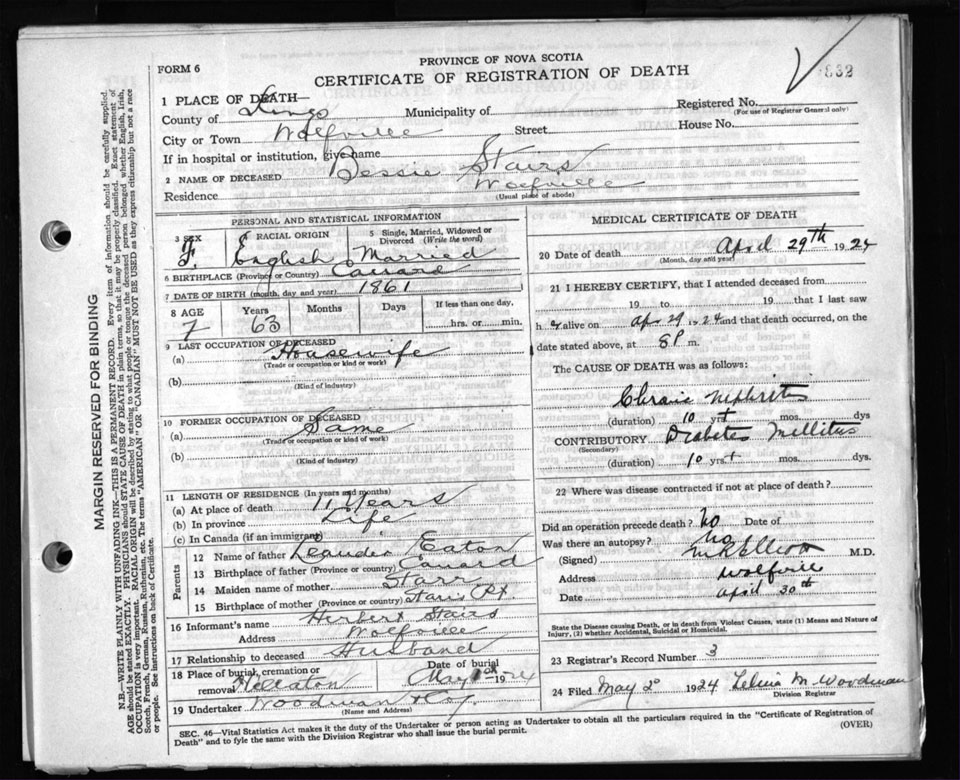 PROVINCE OF NOVA SCOTIA
FORM 6
CERTIFICATE OF REGISTRATION OF DEATH
1 PLACE OF DEATH—
County of Kings Municipality of
Registered No.
(For use of Registrar General only)
City or Town Wolfville Street House No.
If in hospital or institution, give name
2 NAME OF DECEASED Bessie Stairs
Residence Wolfville
(Usual place of abode)
PERSONAL AND STATISTICAL INFORMATION
3 SEX 4 RACIAL ORIGIN 5 Single, Married, Widowed or Divorced (Write the word)
F. English Married
6 BIRTHPLACE (Province or Country) Canard
7 DATE OF BIRTH (month, day and year) 1861
8 AGE Years Months Days If less than one day,
63 hrs. or min.
9 LAST OCCUPATION OF DECEASED
(a) Housewife
(Trade or occupation or kind of work)
(b)
(Kind of industry)
10 FORMER OCCUPATION OF DECEASED
(a) Same
(Trade or occupation or kind of work)
(b)
(Kind of industry)
11 LENGTH OF RESIDENCE (In years and months)
(a) At place of death 11 Years
(b) In province Life
(c) In Canada (if an immigrant)
Parents
12 Name of father Leander Eaton
13 Birthplace of father (Province or country) Canard
14 Maiden name of mother Starr
15 Birthplace of mother (Province or country) Starrs Pt
16 Informant's name Herbert Stairs
Address Wolfville
17 Relationship to deceased Husband
18 Place of burial, cremation or removal Date of burial
May 1924
19 Undertaker Woodman & Coy.
(Name and Address)
MEDICAL CERTIFICATE OF DEATH
20 Date of death April 29th 1924
(Month, day and year)
21 I HEREBY CERTIFY, that I attended deceased from
19 to 19 that I last saw
h er alive on Apr 29 1924 and that death occurred, on the
date stated above, at 8 P m.
The CAUSE OF DEATH was as follows:
Chronic Nephritis
(duration) 10 yrs + mos. dys
CONTRIBUTORY Diabetes Mellitus
(Secondary)
(duration) 10 yrs. + mos. dys.
22 Where was disease contracted if not at place of death?
Did an operation precede death? No Date of
Was there an autopsy? No
(Signed) M R Elliott M.D.
Address Wolfville
Date April 30th
State the Disease causing Death, or in death from Violent Causes, state (1) Means and Nature of
Injury, (2) whether Accidental, Suicidal or Homicidal.
23 Registrar's Record Number 3
24 Filed May 2 1924 M. Woodman
Division Registrar
SEC. 46—Vital Statistics Act makes it the duty of the Undertaker or person acting as Undertaker to obtain all the particulars required in the "Certificate of Registration of
Death" and to fyle the same with the Division Registrar who shall issue the burial permit.
(OVER)
MARGIN RESERVED FOR BINDING
N.B.—WRITE PLAINLY WITH UNFADING INK—THIS IS A PERMANENT RECORD. Every item of information should be carefully supplied.
AGE should be stated EXACTLY. PHYSICIANS should STATE CAUSE OF DEATH in plain terms, so that it may be properly classified. Exact statement of
OCCUPATION is very important. RACIAL ORIGIN will be described by stating to what people or tongue the deceased person belonged whether English, Irish,
Scotch, French, German, Russian, Ruthenian, etc. The terms "AMERICAN" OR "CANADIAN" MUST NOT BE USED as they express citizenship but not a race
or people. See instructions on back of Certificate.